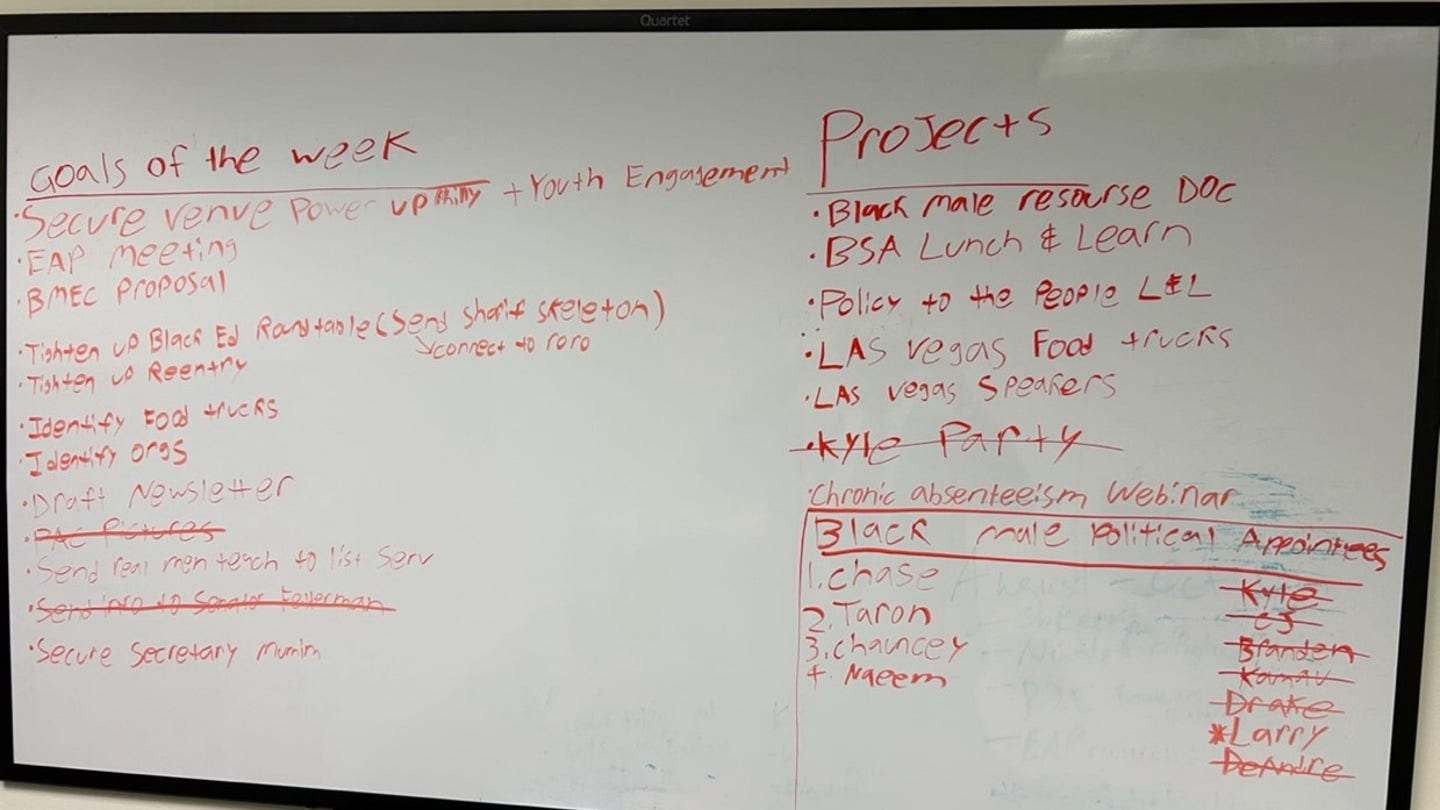 Quartet
Goals of the week
• Secure venue Power up Philly + Youth Engagement
• EAP meeting
• BMEC Proposal
• Tighten up Black Ed Roundtable (Send sharif skeleton)
connect to roro
• Tighten up Reentry
• Identify Food trucks
• Identify orgs
• Draft Newsletter
• PAC Pictures
• Send real men teach to list serv
• Send info to Senator Fetterman
• Secure Secretary Mumin
Projects
• Black male resourse DOC
• BSA Lunch & Learn
• Policy to the People L&L
• LAS vegas Food trucks
• LAS vegas Speakers
• Kyle Party
• Chronic absenteeism Webinar
Black male Political Appointees
1. Chase
2. Taron
3. Chauncey
4. Naeem
Kyle
CJ
Branden
Drake
*Larry
DeAndre